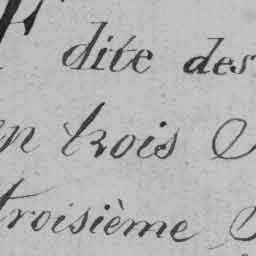 dite des
en trois
troisième